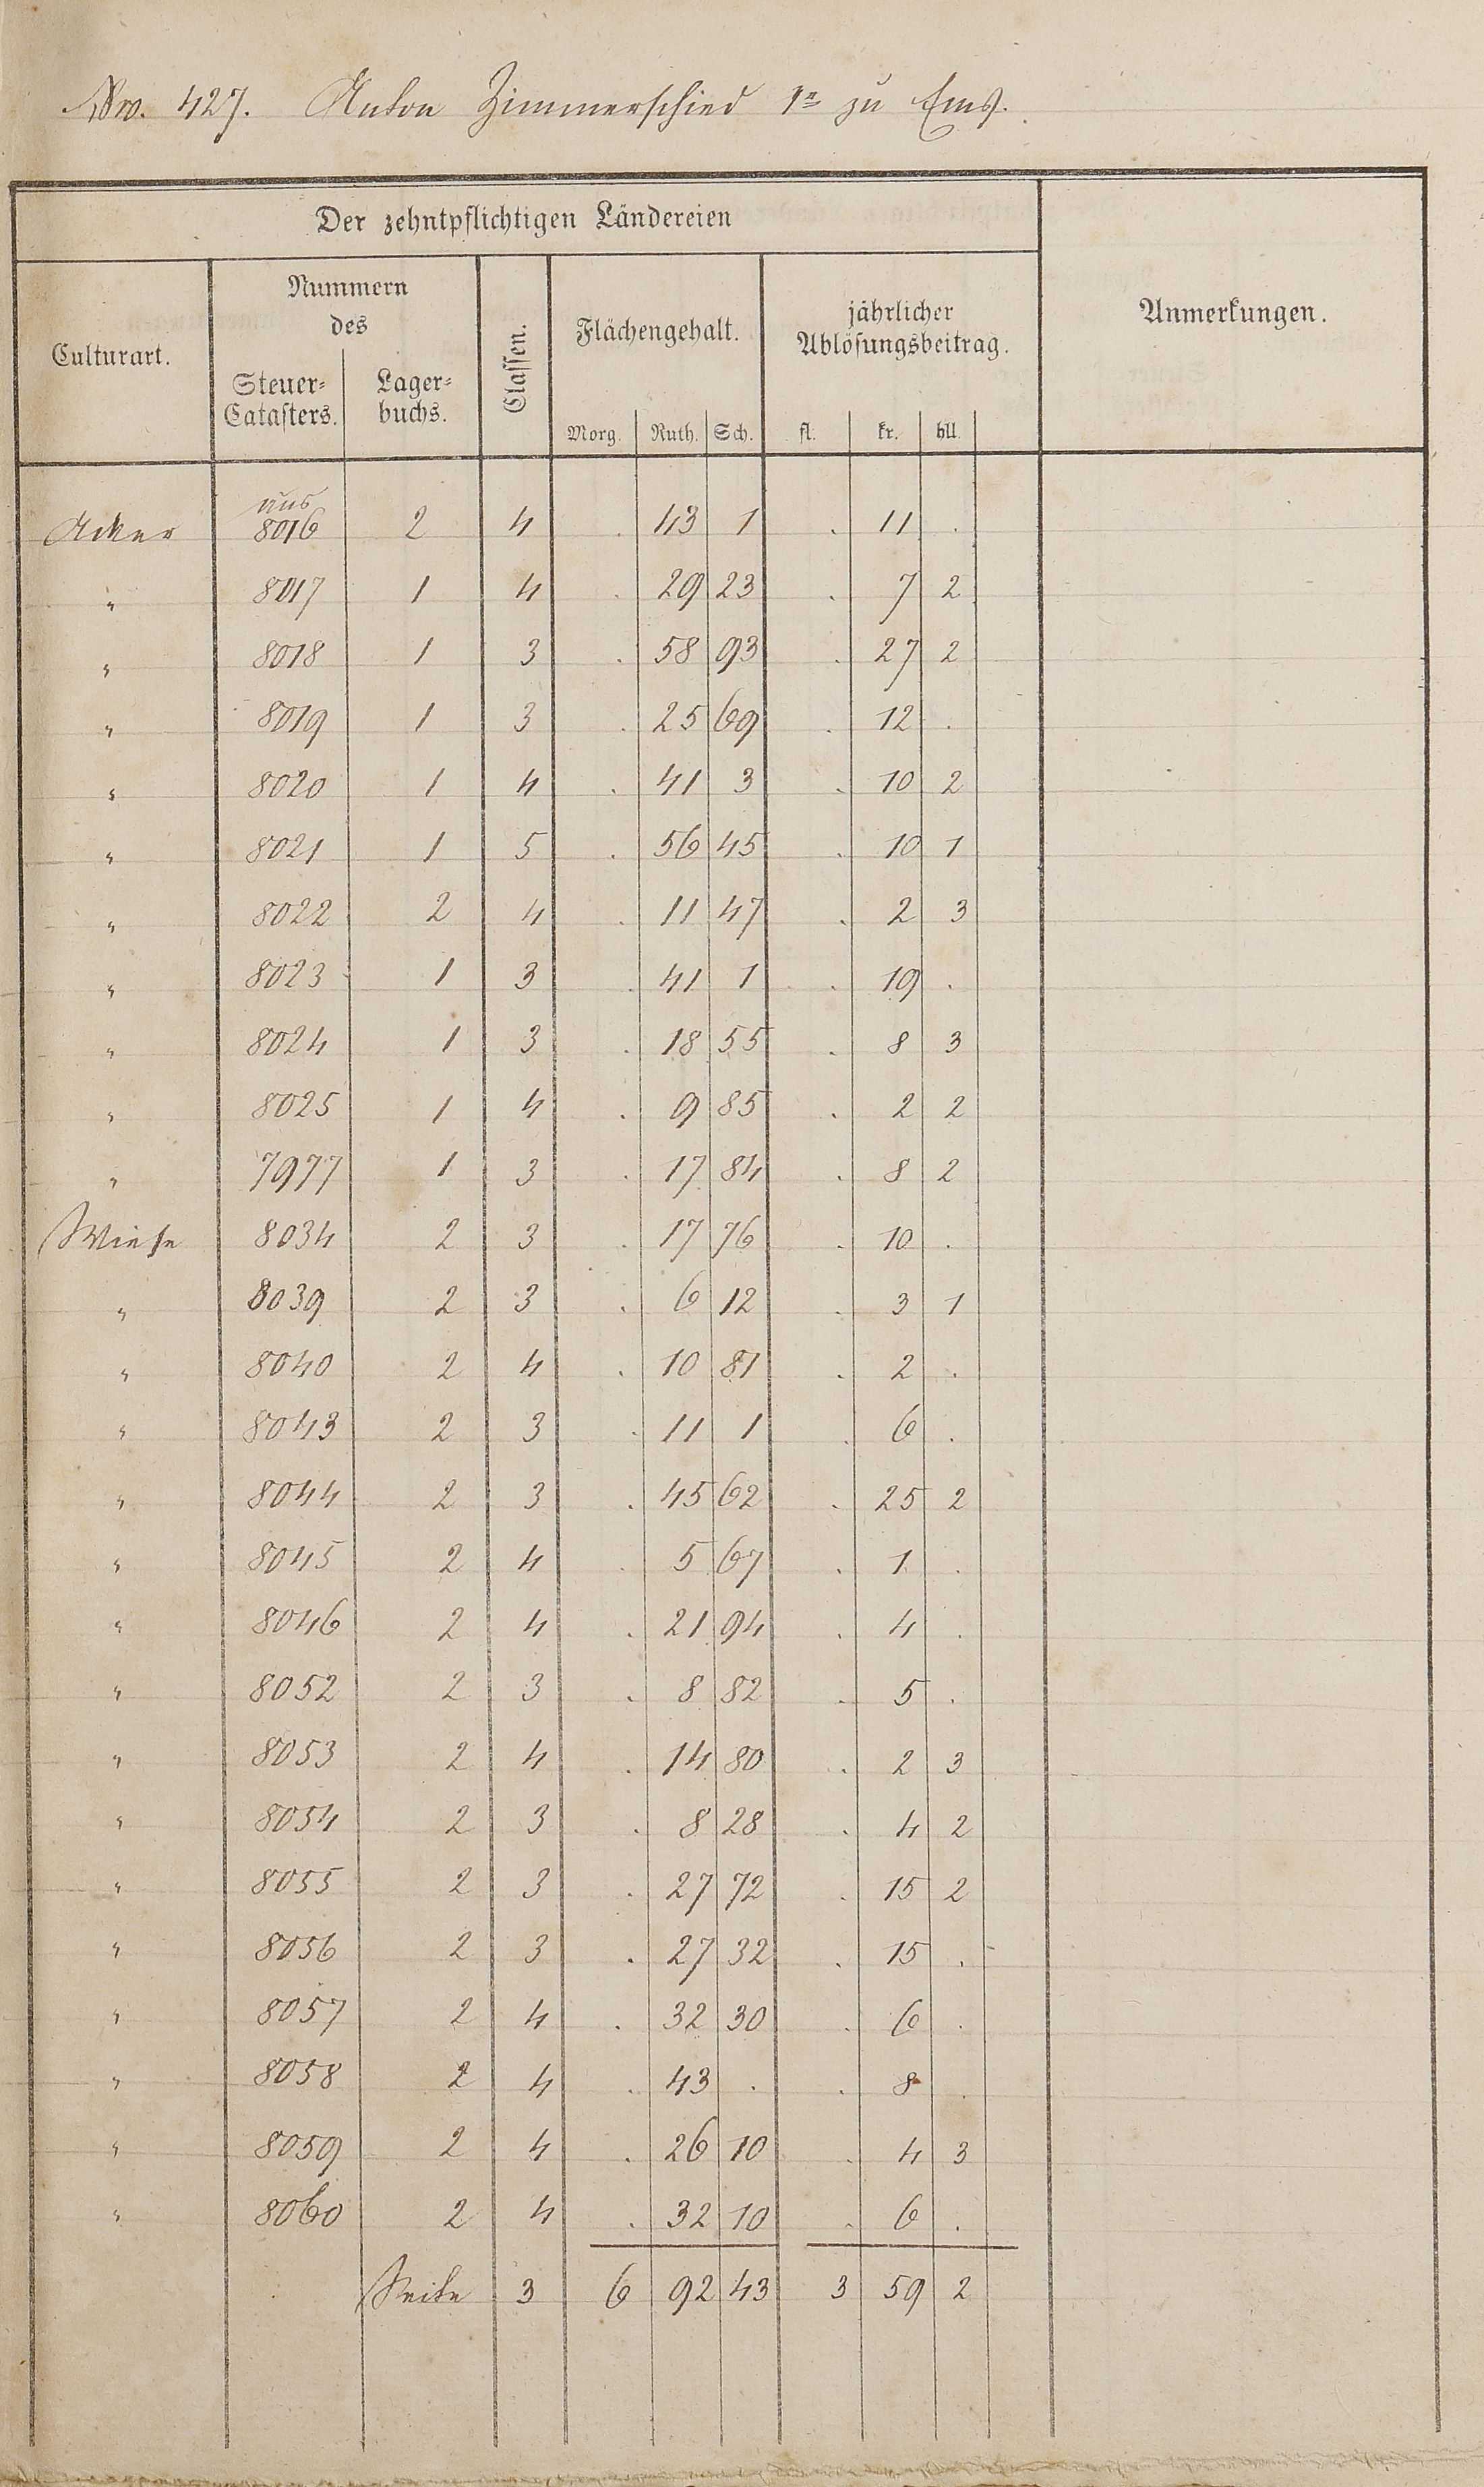 Nro. 427. Anton Zimmerschied 1r zu Ems.
Der zehntpflichtigen Ländereien
Culturart.
Nummern
des
Steuer-
Catasters.
Lager-
buchs.
Classen.
Flächengehalt.
Morg. Ruth. Sch.
jährlicher
Ablösungsbeitrag.
fl. kr. hll.
Anmerkungen.
aus
Acker 8016 2 4 . 43 1 . 11 .
" 8017 1 4 . 29 23 . 7 2
" 8018 1 3 . 58 93 . 27 2
" 8019 1 3 . 25 69 . 12 .
" 8020 1 4 . 41 3 . 10 2
" 8021 1 5 . 56 45 . 10 1
" 8022 2 4 . 11 47 . 2 3
" 8023 1 3 . 41 1 . 19 .
" 8024 1 3 . 18 55 . 8 3
" 8025 1 4 . 9 85 . 2 2
" 7977 1 3 . 17 84 . 8 2
Wiese 8034 2 3 . 17 76 . 10 .
" 8039 2 3 . 6 12 . 3 1
" 8040 2 4 . 10 81 . 2 .
" 8043 2 3 . 11 1 . 6 .
" 8044 2 3 . 45 62 . 25 2
" 8045 2 4 . 5 67 . 1 .
" 8046 2 4 . 21 94 . 4 .
" 8052 2 3 . 8 82 . 5 .
" 8053 2 4 . 14 80 . 2 3
" 8054 2 3 . 8 28 . 4 2
" 8055 2 3 . 27 72 . 15 2
" 8056 2 3 . 27 32 . 15 .
" 8057 2 4 . 32 30 . 6 .
" 8058 2 4 . 43 . . 8 .
" 8059 2 4 . 26 10 . 4 3
" 8060 2 4 . 32 10 . 6 .
Seite 3 6 92 43 3 59 2